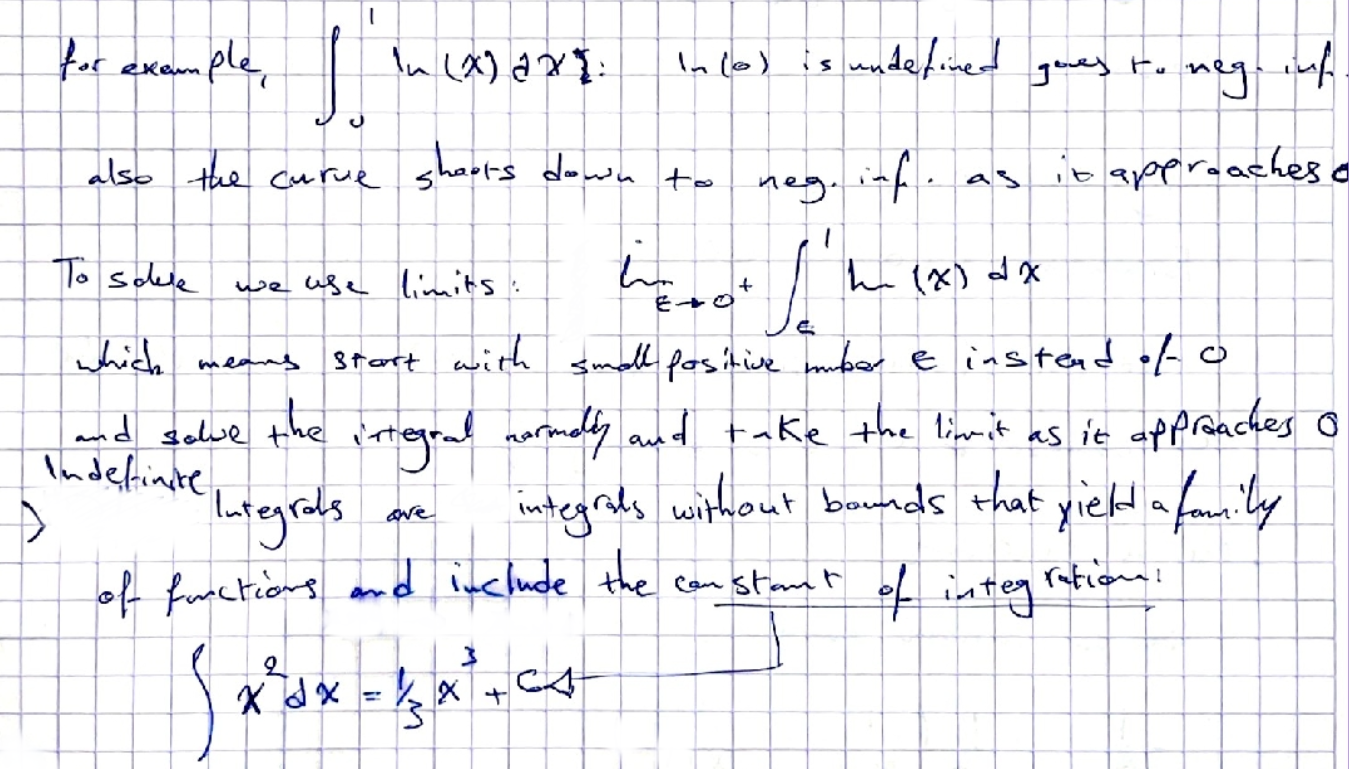 for example, ∫₀¹ ln(x) dx]: ln(0) is undefined goes to neg. inf.
also the curve shoots down to neg. inf. as it approaches 0
To solve we use limits: lim ε→0⁺ ∫_ε¹ ln(x) dx
which means start with small positive number ε instead of 0
and solve the integral normally and take the limit as it approaches 0
Indefinite
> Integrals are integrals without bounds that yield a family
of functions and include the constant of integration:
∫ x² dx = 1/3 x³ + C